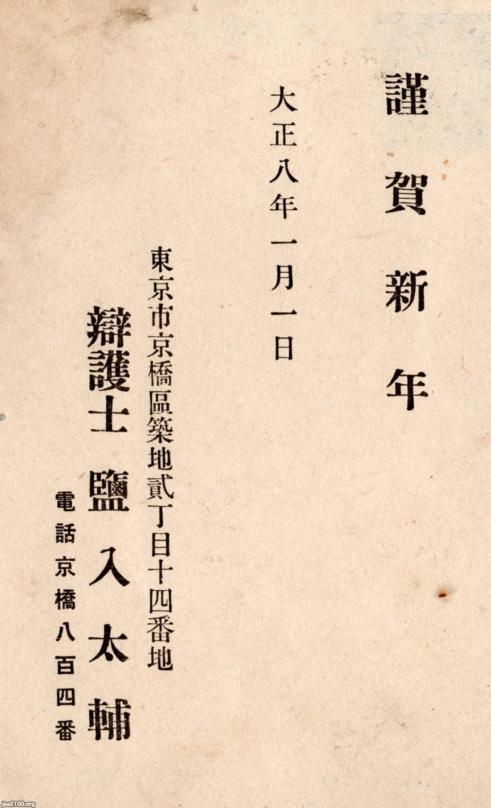 謹賀新年
大正八年一月一日
東京市京橋區築地貳丁目十四番地
辯護士 鹽入太輔
電話京橋八百四番
jaa2100.org